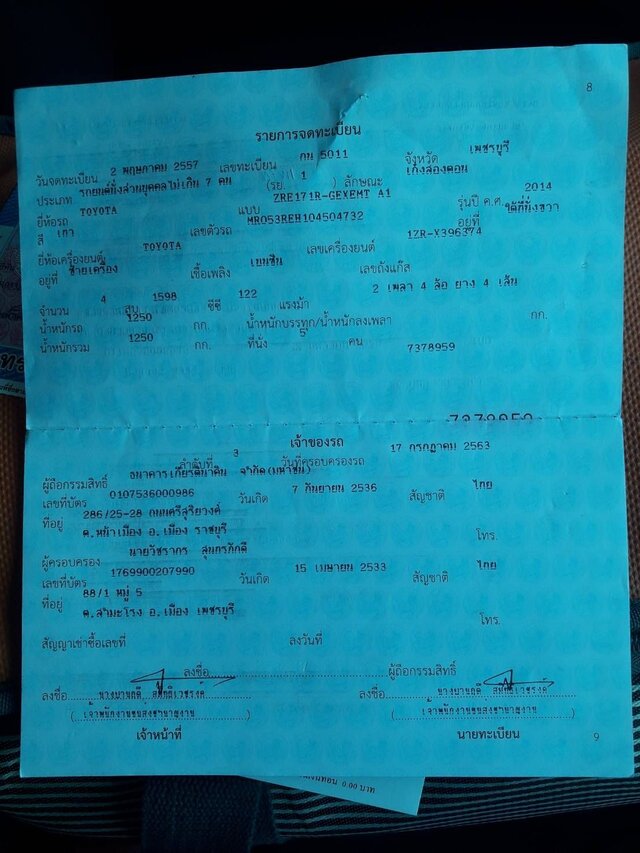 8
รายการจดทะเบียน
วันจดทะเบียน 2 พฤษภาคม 2557 เลขทะเบียน กน 5011 จังหวัด เพชรบุรี
ประเภท รถยนต์นั่งส่วนบุคคลไม่เกิน 7 คน (รย 1 ) ลักษณะ เก๋งสองตอน
ยี่ห้อรถ TOYOTA แบบ ZRE171R-GEXEMT A1 รุ่นปี ค.ศ. 2014
สี เทา เลขตัวรถ MR053REH104504732 อยู่ที่ ใต้ที่นั่งขวา
ยี่ห้อเครื่องยนต์ TOYOTA เลขเครื่องยนต์ 1ZR-X396374
อยู่ที่ ซ้ายเครื่อง เชื้อเพลิง เบนซิน เลขถังแก๊ส
จำนวน 4 สูบ 1598 ซีซี 122 แรงม้า 2 เพลา 4 ล้อ ยาง 4 เส้น
น้ำหนักรถ 1250 กก. น้ำหนักบรรทุก/น้ำหนักลงเพลา กก.
น้ำหนักรวม 1250 กก. ที่นั่ง 5 คน 7378959
7378959
เจ้าของรถ
ลำดับที่ 3 วันที่ครอบครองรถ 17 กรกฎาคม 2563
ผู้ถือกรรมสิทธิ์ ธนาคารเกียรตินาคิน จำกัด(มหาชน)
เลขที่บัตร 0107536000986 วันเกิด 7 กันยายน 2536 สัญชาติ ไทย
ที่อยู่ 286/25-28 ถนนศรีสุริยวงค์
ต.หน้าเมือง อ.เมือง ราชบุรี โทร.
ผู้ครอบครอง นายวัชรากร สุนทรภักดี
เลขที่บัตร 1769900207990 วันเกิด 15 เมษายน 2533 สัญชาติ ไทย
ที่อยู่ 88/1 หมู่ 5
ต.สำมะโรง อ.เมือง เพชรบุรี โทร.
สัญญาเช่าซื้อเลขที่ ลงวันที่
ลงชื่อ ผู้ถือกรรมสิทธิ์
ลงชื่อ ลงชื่อ
(เจ้าพนักงานขนส่งชำนาญงาน) (เจ้าพนักงานขนส่งชำนาญงาน)
เจ้าหน้าที่ นายทะเบียน
9
0.00 บาท